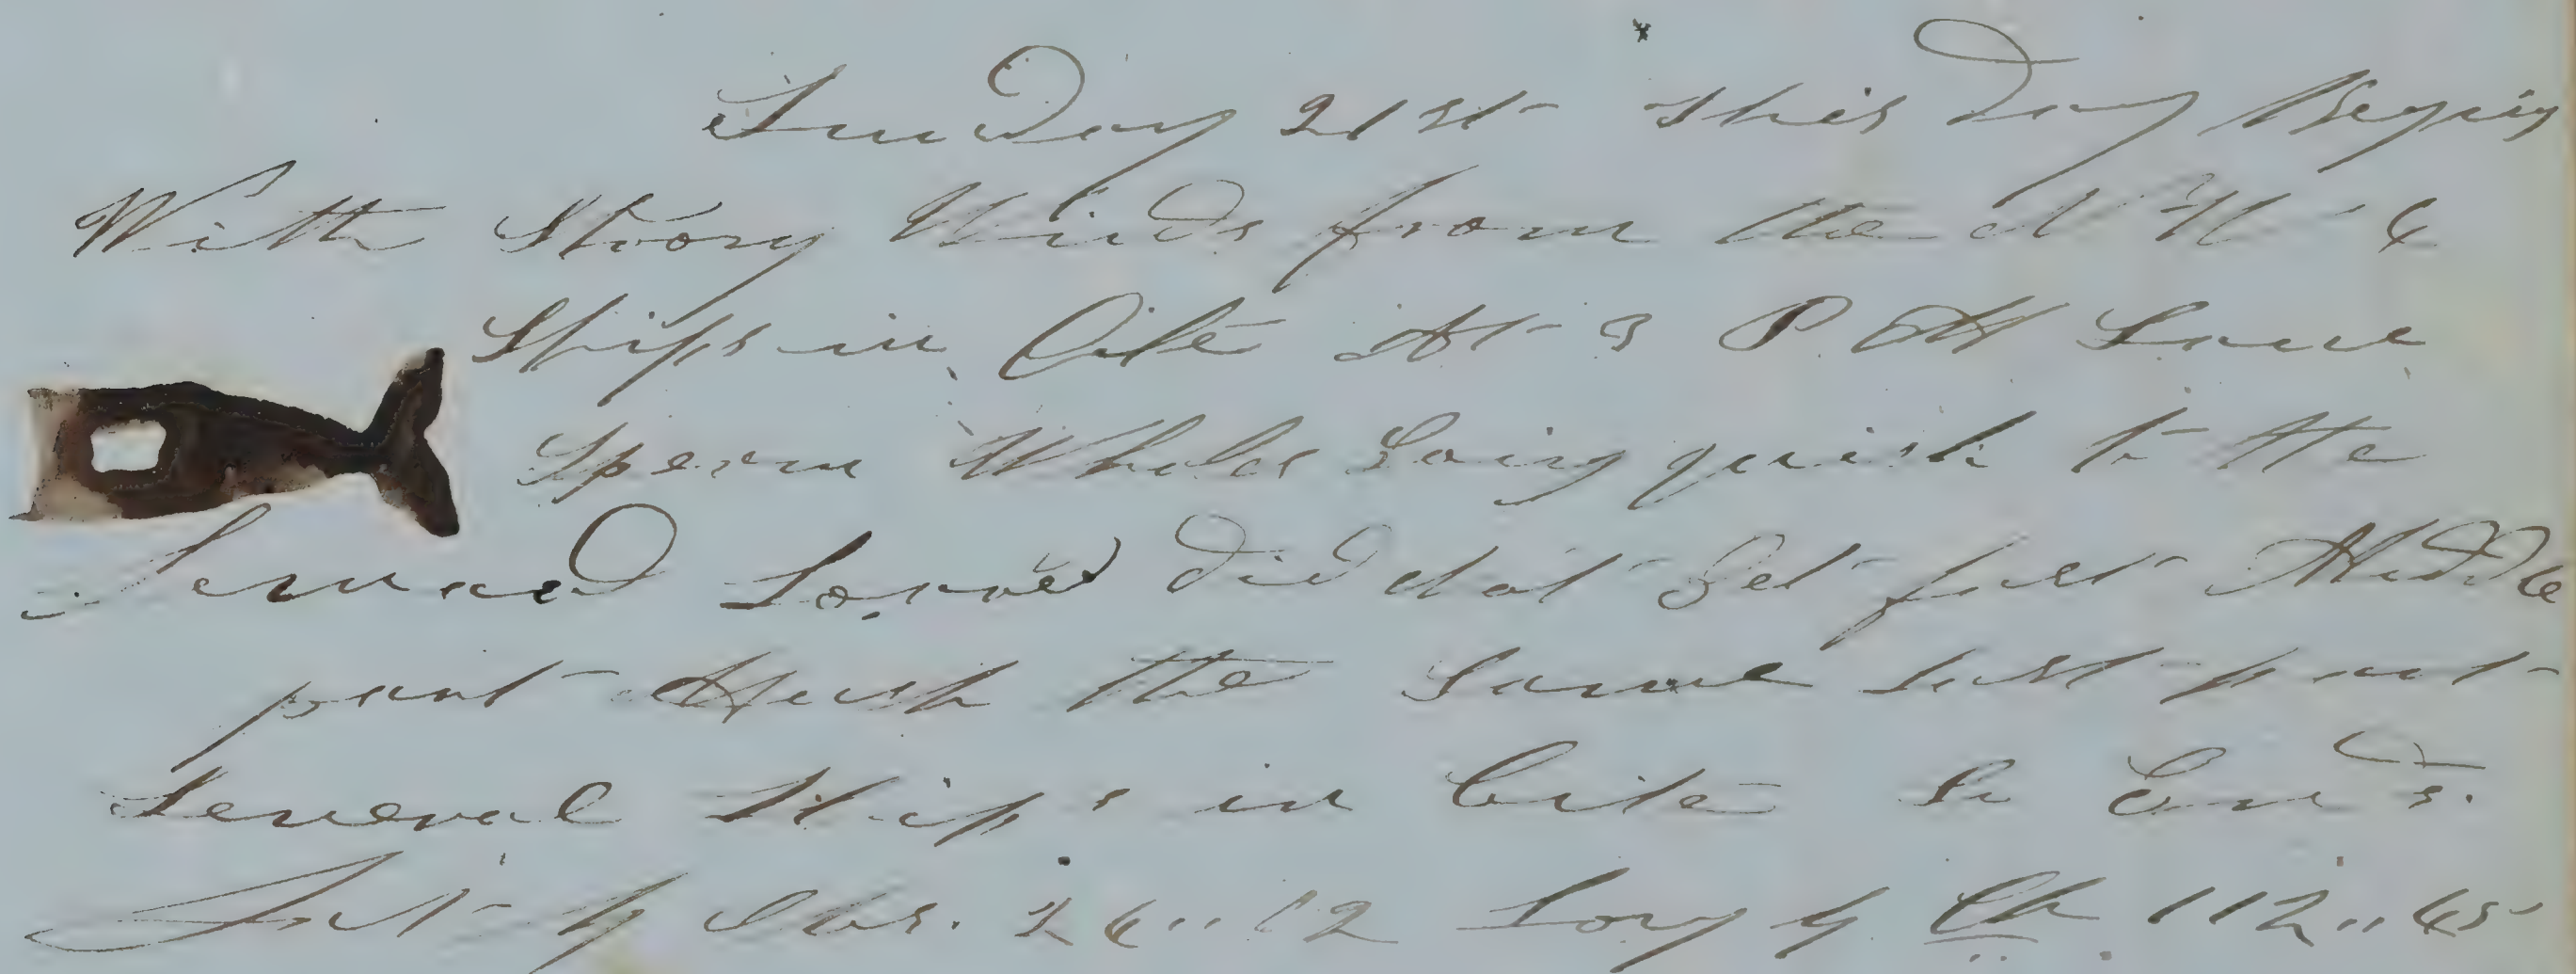 Sunday 21st this Day Begins
With Strong Winds from the N W 6
Ships in Cite At 3 P.M Saw
Sperm Whales Going quick to the
Lerward Lowred Did Not Get fast Middle
part Much the Same Last part
Several Ships in Cite So Ends.
Lat by Obs. 26,,12 Long by Ch 112,,45